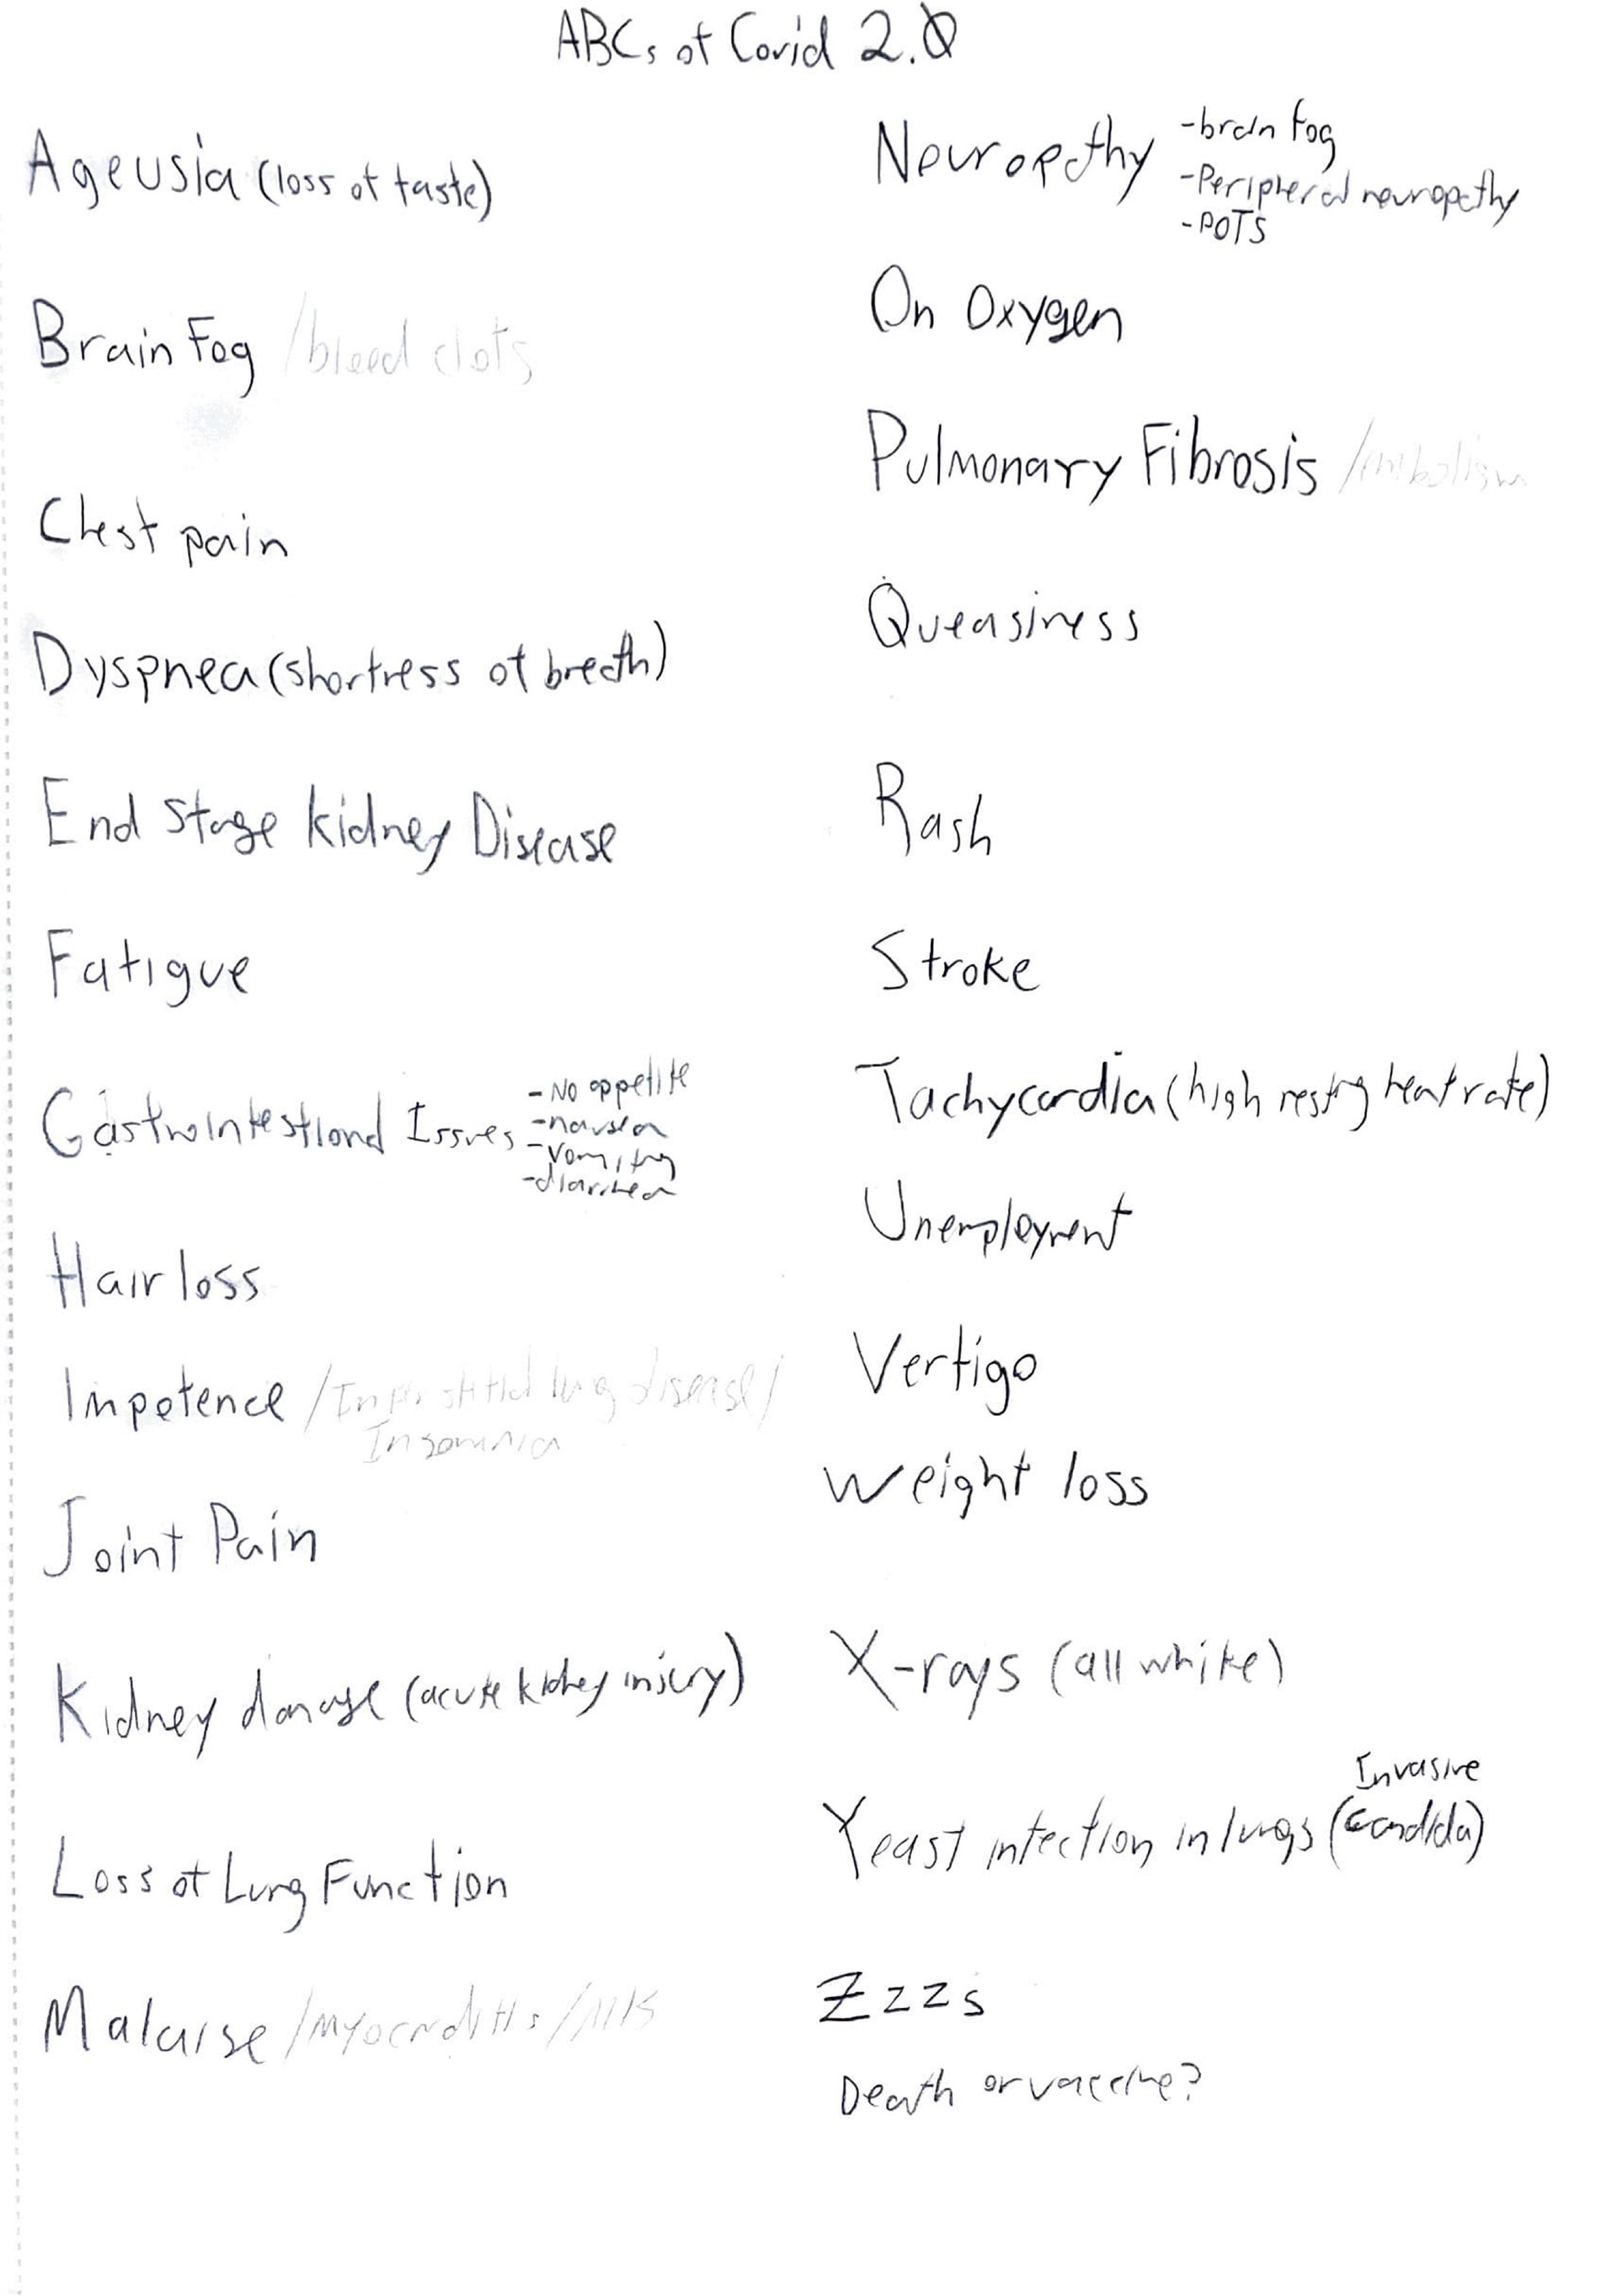 ABCs of Covid 2.0
Ageusia (loss of taste)
Brain Fog /blood clots
Chest pain
Dyspnea (shortness of breath)
End Stage Kidney Disease
Fatigue
Gastrointestional Issues
-No appetite
-nausea
-vomiting
-diarrhea
Hair loss
Impotence /Interstitial lung disease/
Insomnia
Joint Pain
Kidney damage (acute kidney injury)
Loss of Lung Function
Malaise /myocarditis/
Neuropathy
-brain fog
-Peripheral neuropathy
-POTS
On Oxygen
Pulmonary Fibrosis /embolism
Queasiness
Rash
Stroke
Tachycardia (high resting heart rate)
Unemployment
Vertigo
Weight loss
X-rays (all white)
Invasive
Yeast infection in lungs (candida)
Zzzs
Death or vaccine?